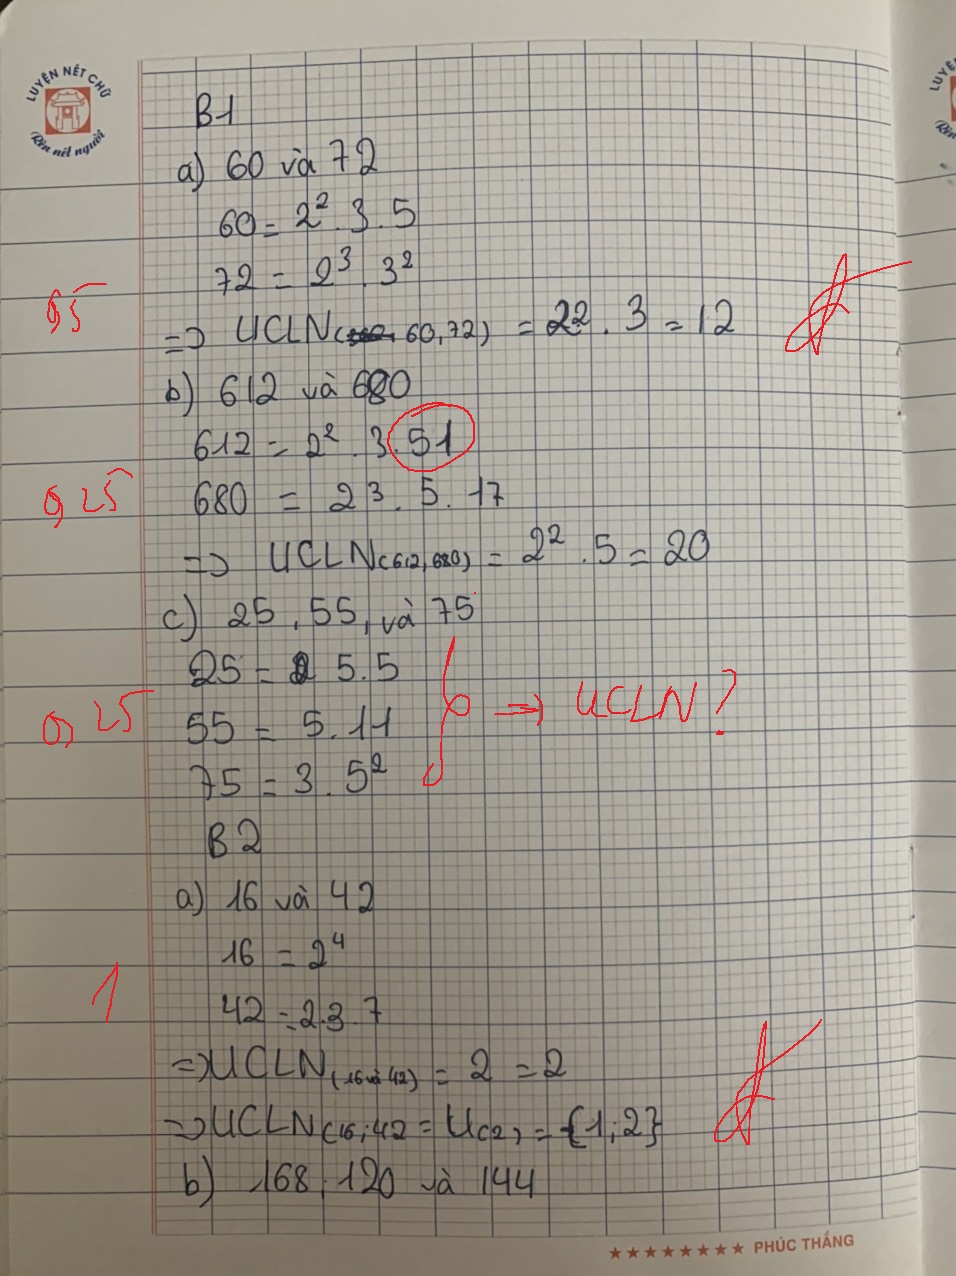 LUYỆN NÉT CHỮ
Rèn nết người
B1
a) 60 và 72
60 = 2². 3. 5
72 = 2³. 3²
0,5
=> ƯCLN(60,72) = 2². 3 = 12
b) 612 và 680
612 = 2². 3. 51
0,25
680 = 23. 5. 17
=> UCLN(612,680) = 2². 5 = 20
c) 25, 55, và 75
25 = 5.5
0,25
55 = 5. 11
=> UCLN?
75 = 3. 5²
B2
a) 16 và 42
16 = 2⁴
1
42 = 2.3.7
=> UCLN(16 và 42) = 2 = 2
=> UCLN(16;42 = U(2) = {1;2}
b) 168, 120 và 144
★★★★★★★★ PHÚC THẮNG